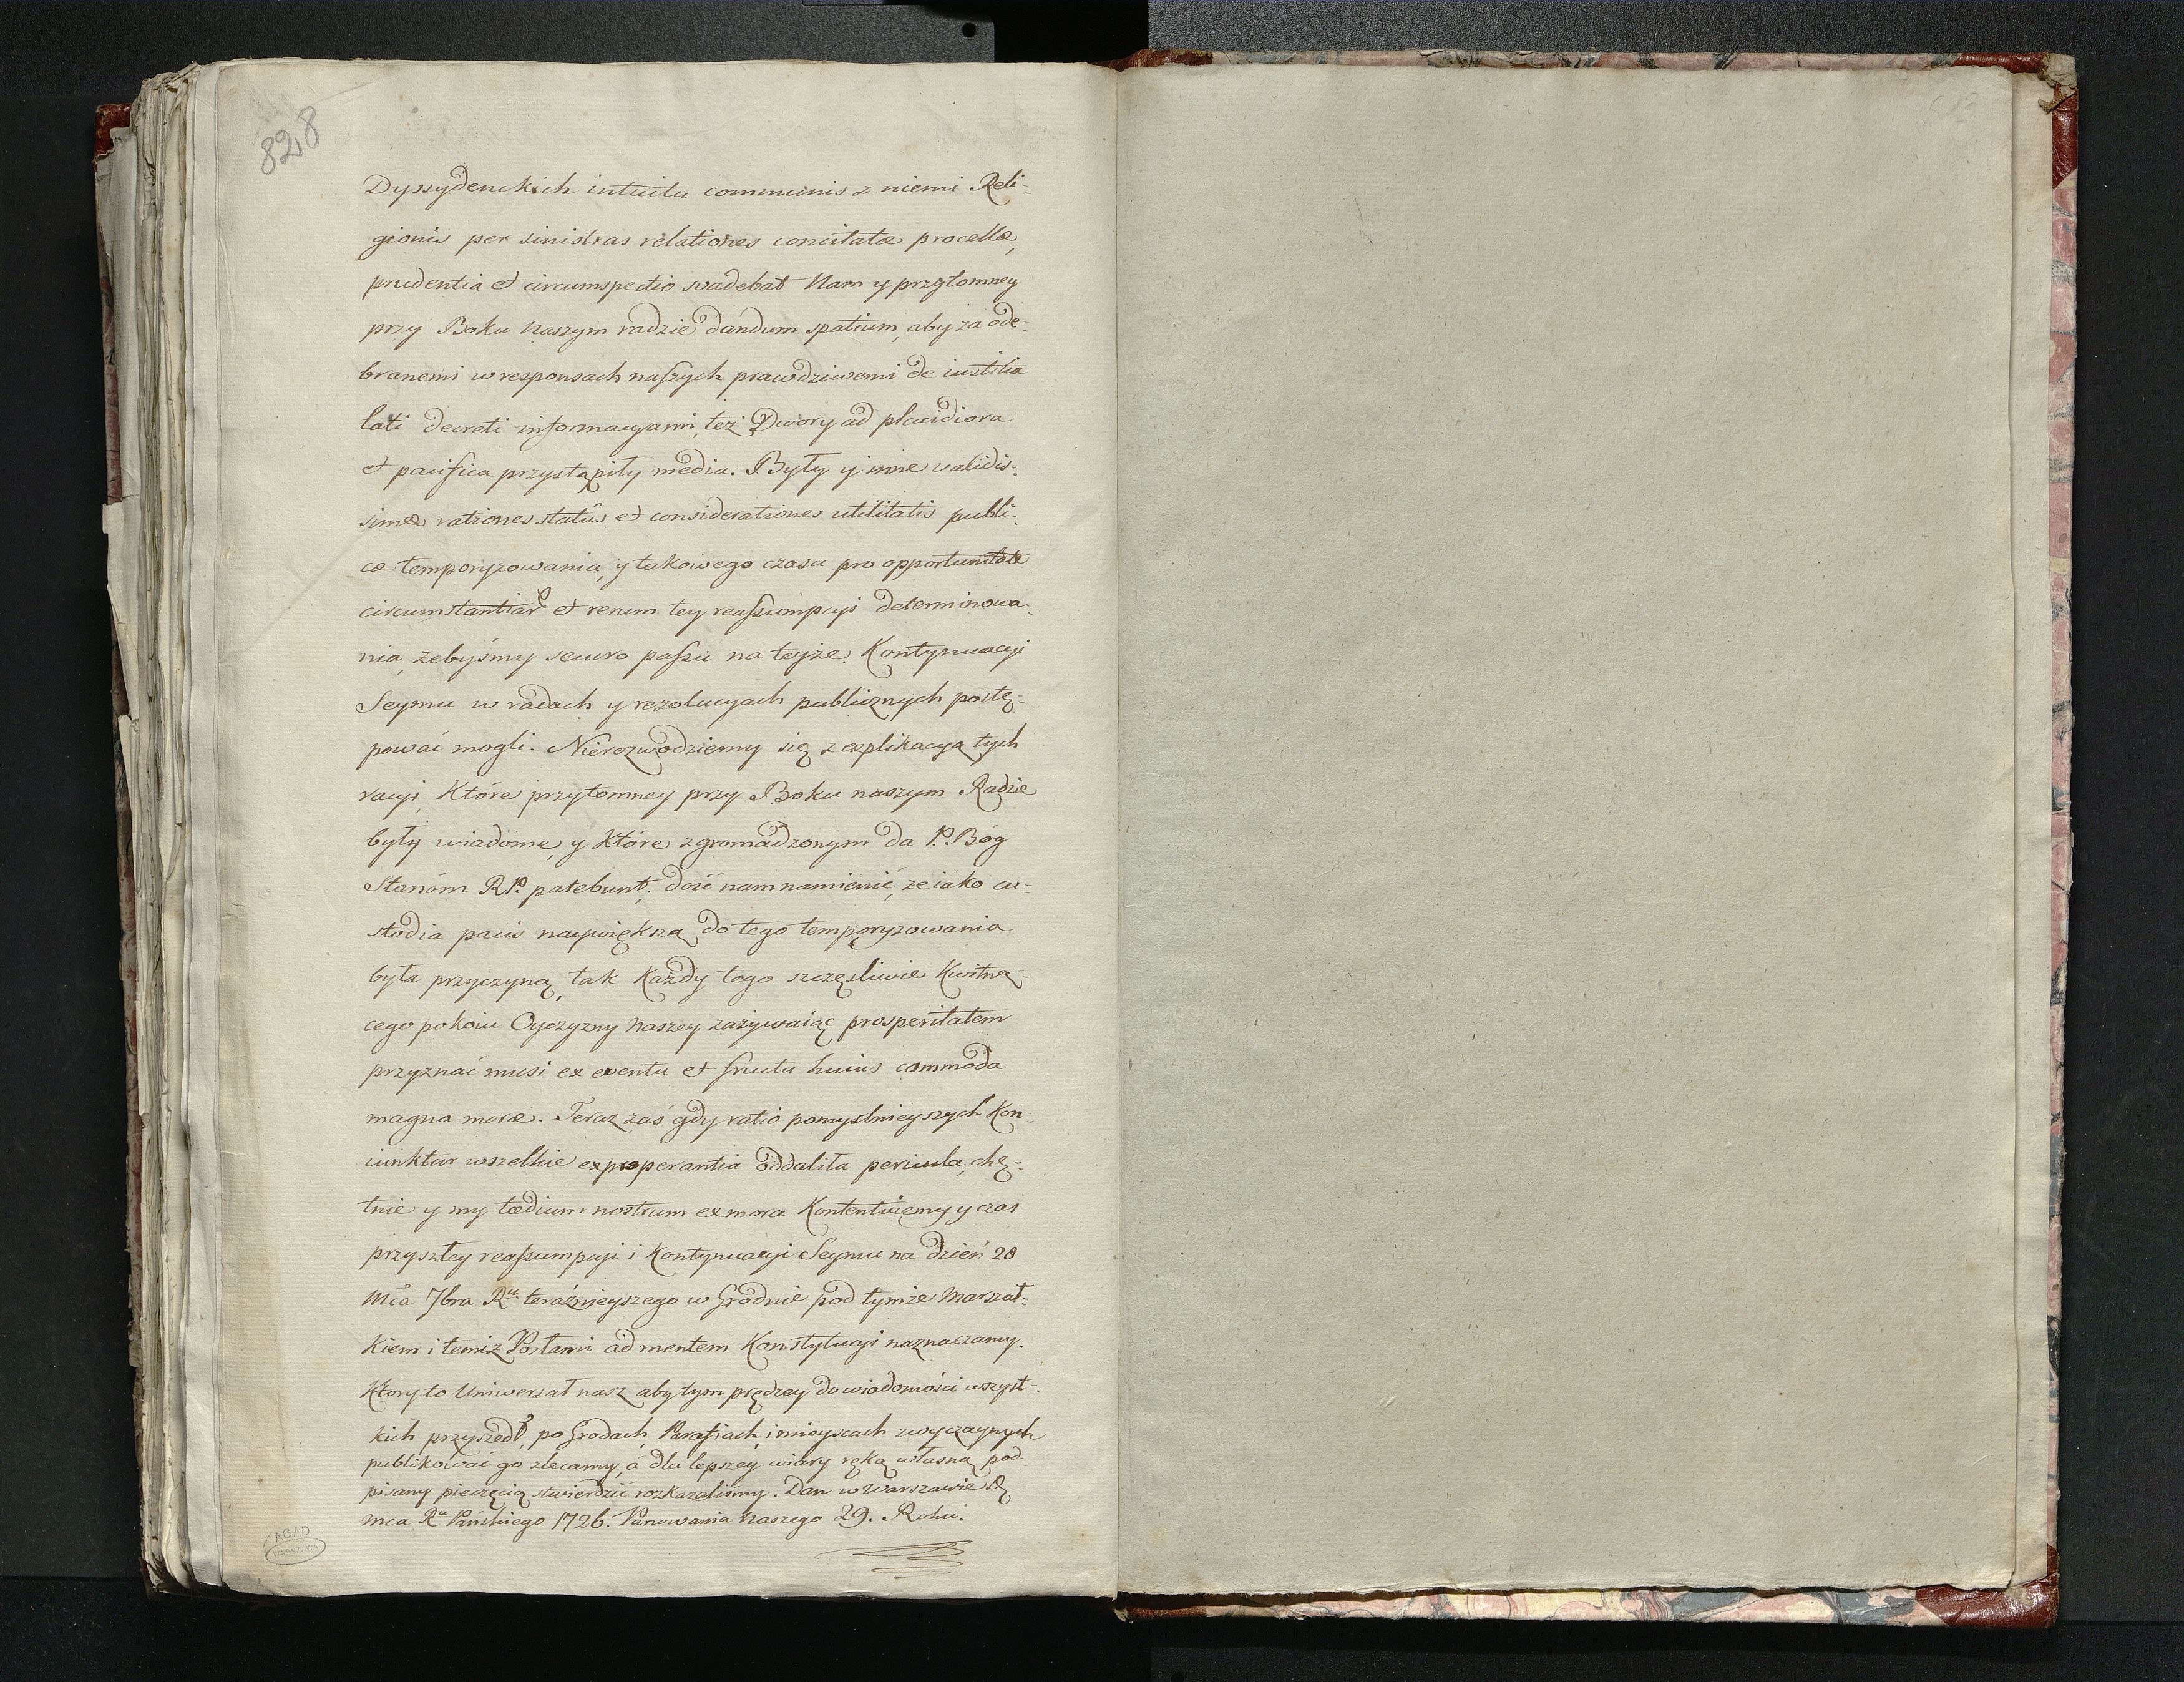 828
Dyssydenckich intuitu communis z niemi Reli-
gionis per sinistras relationes concitatæ procellæ,
prudentia et circumspectio svadebat Nam y przytomney
przy Boku Naszym radzie dandum spatium, aby za ode-
branemi w responsach naszych prawdziwemi de iustitia
lati decreti informacyami, też Dwory ad placidiora
et pacifica przystąpiły media. Były y inne validis-
simæ rationes statûs et considerationes utilitatis publi-
cæ temporyzowania, y takowego czasu pro opportunitate
circumstantiar et rerum tey reassumpcyi determinowa-
nia, żebyśmy securo passu na teyże Kontynuacyi
Seymu w radach y rezolucyach publicznych postę-
pować mogli. Nierozwodziemy się z explikacyą tych
racyi, Które przytomney przy Boku naszym Radzie
były wiadome, y Które zgromadzonym da P. Bóg
Stanóm RP. patebunt; dość nam namienić, ze iako cu-
stodia pacis naywiększą do tego temporyzowania
była przyczyną, tak Każdy tego szczęsliwie Kwitną-
cego pokoiu Oyczyzny Naszey zażywaiąc prosperitatem
przyznać musi ex eventu et fructu huius commoda
magna moræ. Teraz zaś gdy ratio pomyslnieyszych Kon-
iunktur wszelkie exproperantia oddaliła pericula, chę-
tnie y my tædium nostrum ex mora Kontentuiemy y czas
przyszłey reassumpcyi i Kontynuacyi Seymu na dzień 28
Mca 7bra Ru teraźnieyszego w Grodnie pod tymże Marszał-
Kiem i temiż Posłami ad mentem Konstytucyi naznaczamy.
Ktory to Uniwersał nasz aby tym prędzey do wiadomości wszyst-
kich przyszedł, po Grodach, Parafiach, i mieyscach zwyczaynych
publikować go zlecamy, á dla lepszey wiary ręką własną pod-
pisany pieczęcią stwierdzić rozkazaliśmy. Dan w Warszawie D
mca Ru Pańskiego 1726. Panowania Naszego 29. Roku.
AGAD
WARSZAWA